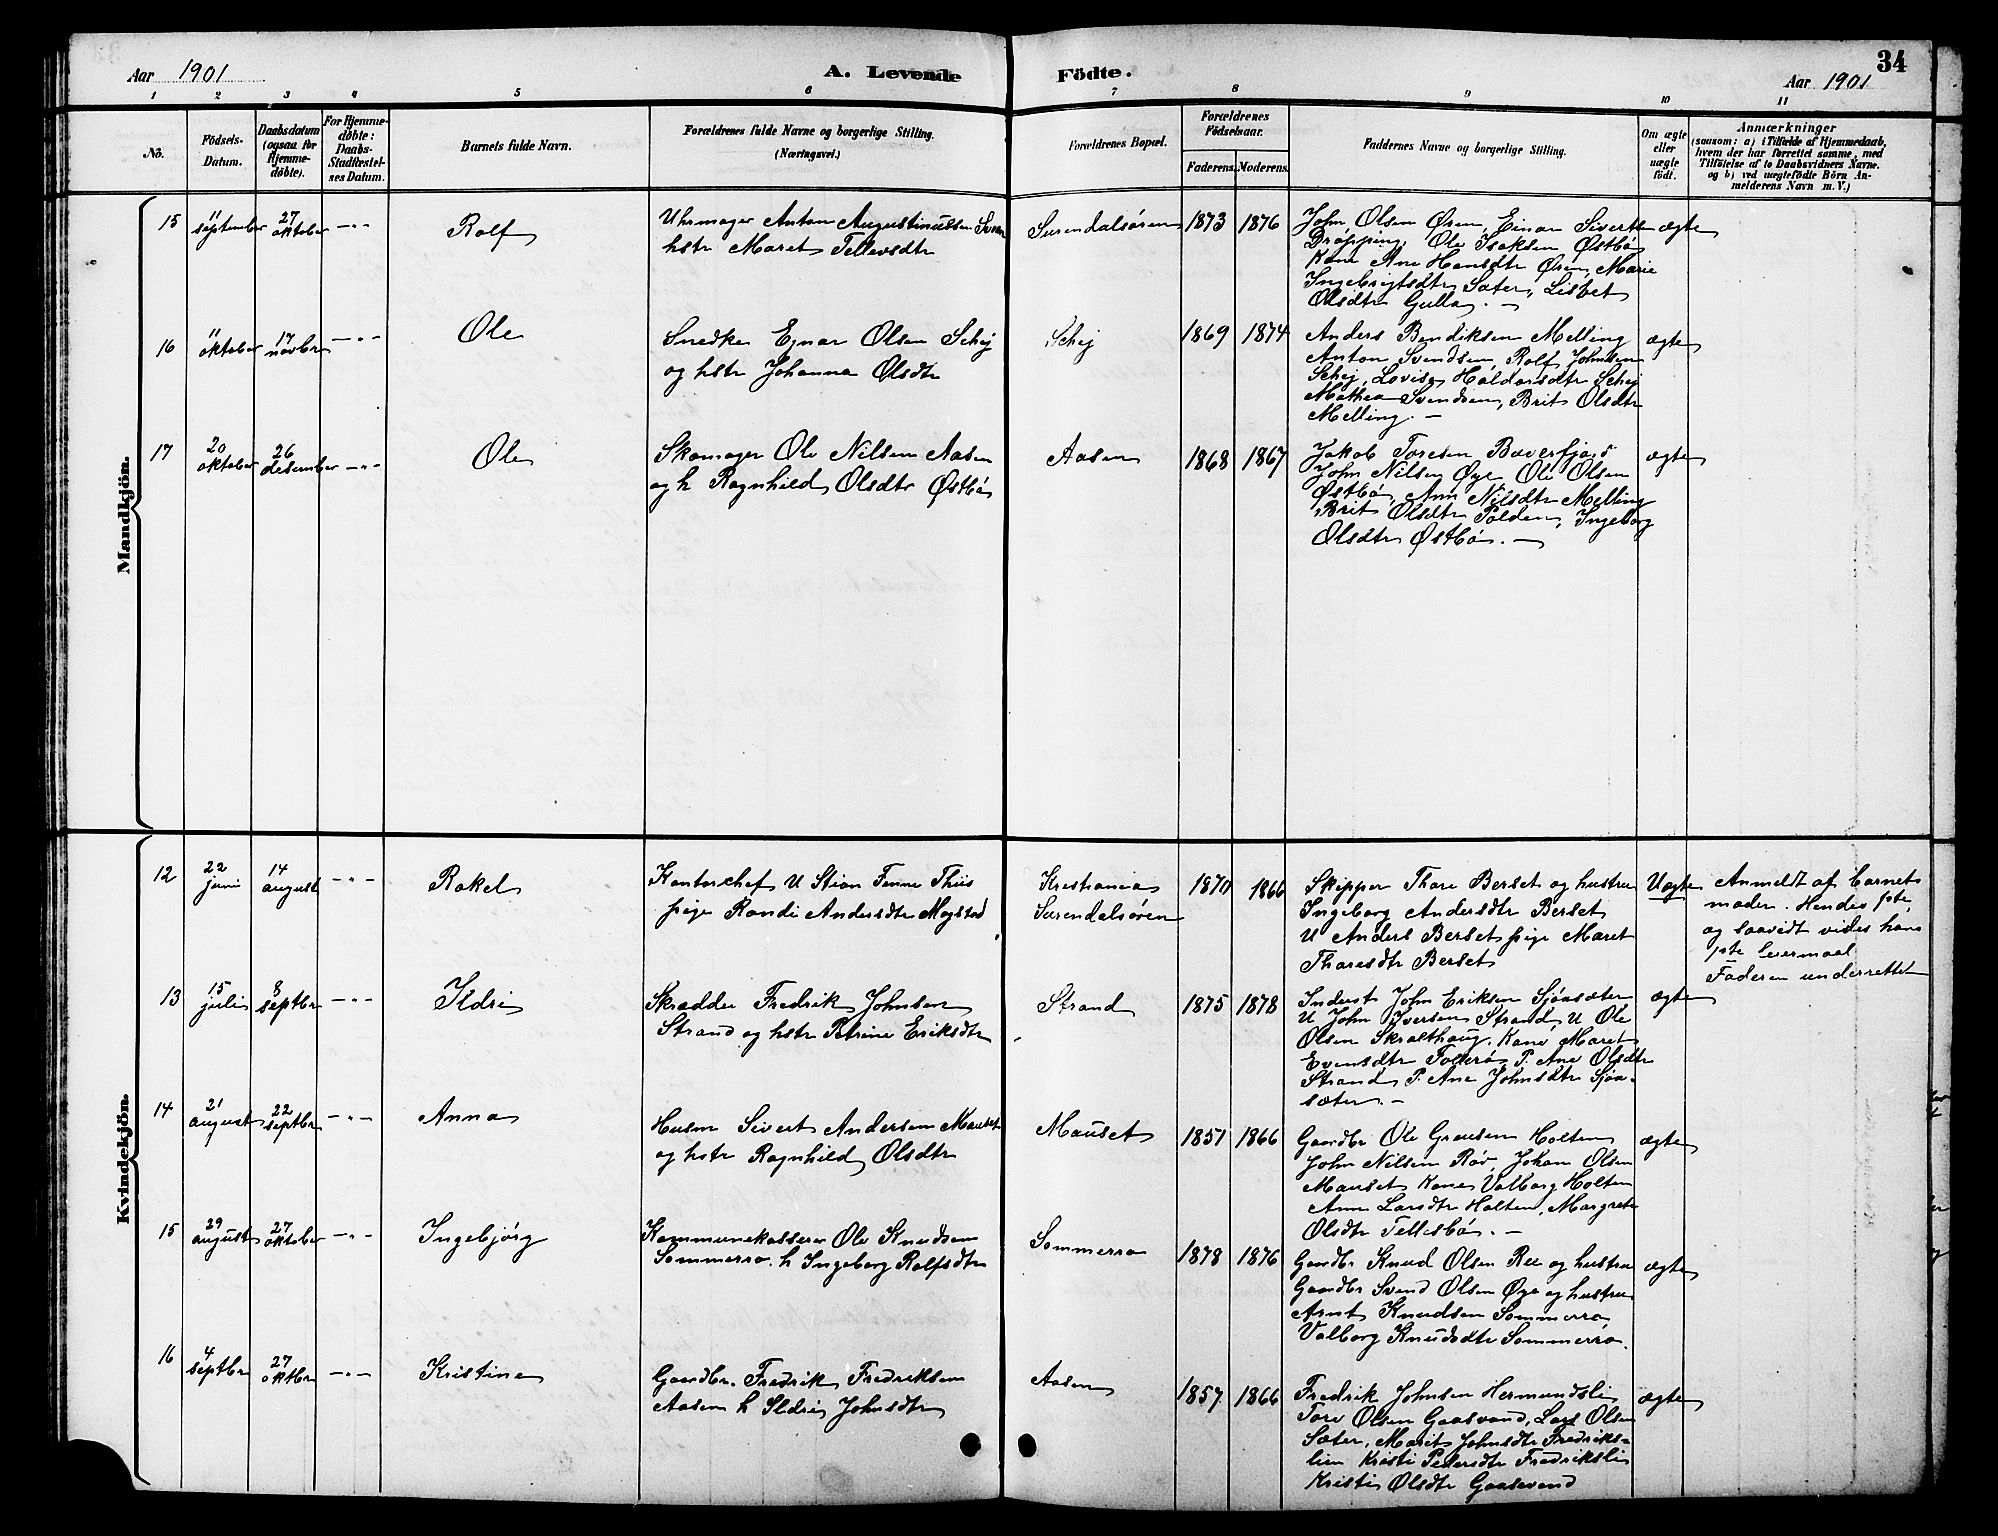 Aar 1901 A. Levende Födte. Aar 1901 34
1 2 3 4 5 6 7 8 9 10 11
No.
Födsels-Datum.
Daabsdatum (ogsaa for Hjemmedøbte).
For Hjemmedøbte: Daabs-Stadfæstelses Datum.
Barnets fulde Navn.
Forældrenes fulde Navne og borgerlige Stilling.
(Næringsvei.)
Forældrenes Bopæl.
Forældrenes Födselsaar.
Faderens. Moderens.
Faddernes Navne og borgerlige Stilling.
Om ægte eller uægte födt.
Anmærkninger
(saasom: a) i Tilfælde af Hjemmedaab,
hvem der har forrettet samme, med
Tilföielse af to Daabsvidners Navne.
og b) ved uægtefödte Börn An-
melderens Navn m. V.)
Mandkjön.
15 11 september 27 oktober -"- Rolf
Uhrmager Anton Augustinussen
hstr Maret Tellevsdtr
Surendalsøren 1873 1876
John Olsen Øren, Einar Sivertsen
Drøpping, Ole Isaksen Østbø
Kone Ane Hansdtr Øren, Marie
Ingebrigtsdtr Sæter, Lisbet
Olsdtr Gulla. -
ægte
16 11 oktober 17 novbr -"- Ole
Snedker Ejnar Olsen Schej
og hstr Johanna Olsdtr
Schej 1869 1874
Anders Bendiksen Melling
Anton Svendsen, Rolf Johnsen
Schej, Lovise Haldorsdtr Schej
Mathea Svendsen, Brit Olsdtr
Melling. -
ægte
17 20 oktober 26 desember -"- Ole
Skomager Ole Nilsen Aasen
og h Ragnhild Olsdtr Østbø
Aasen 1868 1867
Jakob Toresen Bæverfjord
John Nilsen Øye Ole Olsen
Østbø, Ann Nilsdtr Melling
Brit Olsdtr Polden, Ingeborg
Olsdtr Østbø. -
ægte
Kvindekjön.
12 22 juni 14 august -"- Rakel
Kontorchef U Stian Finne Thiis
pige Randi Andersdtr Mogstad
Kristiania
Surendalsøren
1870 1866
Skipper Thore Berset og hustru
Ingeborg Andersdtr Berset
U Anders Berset pige Maret
Tharesdtr Berset
Uægte
Anmeldt af barnets
moder. Hendes 1ste,
og saavidt vides hans
1ste Leiermaal
Faderen underrettet
13 15 juli 8 septbr -"- Ildri
Skrædder Fredrik Johnsen
Strand og hstr Petrine Eriksdtr
Strand 1875 1878
Inderst John Eriksen Sjøasæter
U John Iversen Strand, U Ole
Olsen Skralthaug. Kone Maret
Evensdtr Follerø, P. Ane Olsdtr
Strand, P. Ane Johnsdtr Sjøa-
sæter. -
ægte
14 21 august 22 septbr -"- Anna
Husm Sivert Andersen Mauset
og hstr Ragnhild Olsdtr
Mauset 1857 1866
Gaardbr Ole Larsen Holten
John Nilsen Røv, Johan Olsen
Mauset Kone Valborg Holten
Ane Larsdtr Holten, Margrete
Olsdtr Tellesbø. -
ægte
15 29 august 27 oktober -"- Ingebjørg
Kommunekasserer Ole Knudsen
Sommerro. h Ingeborg Rolfsdtr
Sommerro 1878 1876
Gaardbr Knud Olsen Ree og hustru
Gaardbr Svend Olsen Øye og hustru
Arnt Knudsen Sommerro
Valborg Knudsdtr Sommerro.
ægte
16 4 septbr 27 oktbr -"- Kristine
Gaardbr. Fredrik Fredriksen
Aasen h Ildri Johnsdtr
Aasen 1857 1866
Fredrik Johnsen Hermundsli
Tore Olsen Gaasvand, Lars Olsen
Sæter, Marit Johnsdtr Fredriks-
lien Kristi Pedersdtr Fredriksli
Kristi Olsdtr Gaasvand
ægte